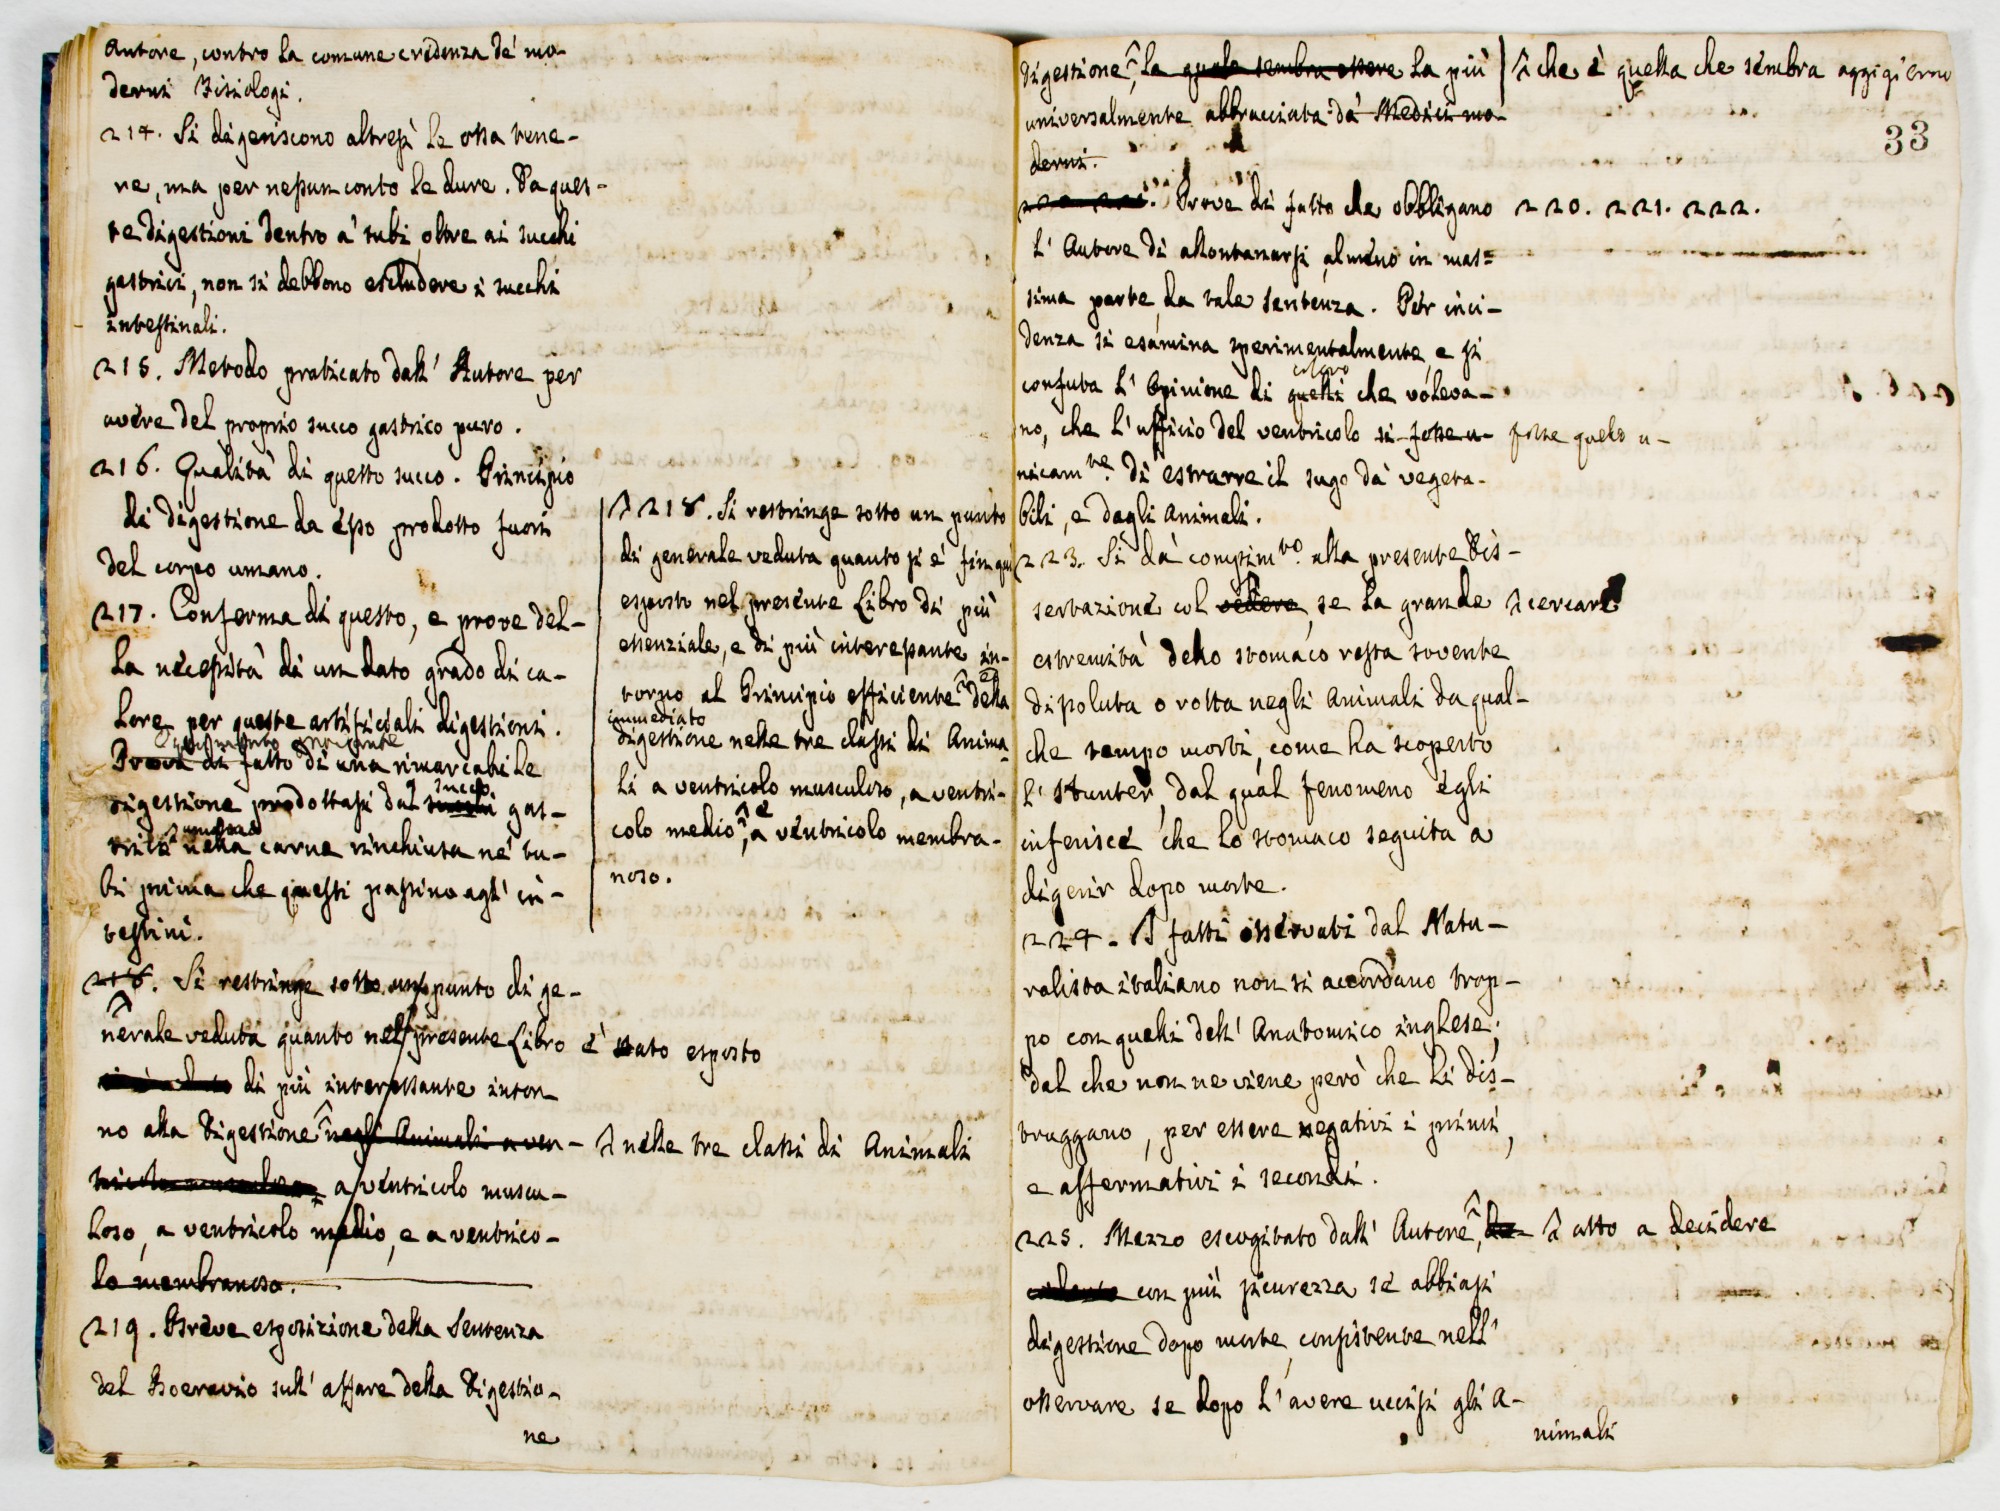 Autore, contro la comune credenza de' mo-
derni Fisiologi.
214. Si digeriscono altresì le ossa tene-
re, ma per nessun conto le dure. Da ques-
te digestioni dentro a' tubi, oltre ai succhi
gastrici, non si debbono escludere i succhi
intestinali.
215. Metodo praticato dall' Autore per
avere del proprio succo gastrico puro.
216. Qualità di questo succo. Principio
di digestione da esso prodotto fuori
del corpo umano.
217. Conferma di questo, e prove del-
la necessità di un dato grado di ca-
lore per queste artificiali digestioni.
Prova di fatto di una rimarcabile
digestione prodottasi dal succo gas-
trico nella carne rinchiusa ne' tu-
bi prima che questi passino agl' in-
testini.
218. Si restringe sotto un punto di ge-
nerale veduta quanto nel presente Libro è stato esposto
di più interessante intor-
no alla Digestione negli Animali a ven- nelle tre classi di Animali
a ventricolo muscu-
loso, a ventricolo medio, e a ventrico-
lo membranoso.
219. Breve esposizione della Sentenza
del Boeravio sull' affare della Digestio-
ne
218. Si restringe sotto un punto
di generale veduta quanto si è fin qui
esposto nel presente Libro di più
essenziale, e di più interessante in-
torno al Principio efficiente della
immediato
digestione nelle tre classi di Anima-
li a ventricolo musculoso, a ventri-
colo medio, e a ventricolo membra-
noso.
33
Digestione, la quale sembra essere la più che è quella che sembra
universalmente abbracciata da' Medici mo-
derni.
Prove di fatto che obbligano 220. 221. 222.
l' Autore di allontanarsi, almeno in mas-
sima parte, da tale sentenza. Per inci-
denza si esamina sperimentalmente, e si
coloro
confuta l' Opinione di quelli che voleva-
no, che l' ufficio del ventricolo si fosse u- fosse quello u-
nicamte. di estrarre il sugo da' vegeta-
bili, e dagli Animali.
223. Si dà compimto. alla presente Dis-
sertazione col vedere, se la grande cercare
estremità dello stomaco resta sovente
dissoluta o rotta negli Animali da qual-
che tempo morti, come ha scoperto
l' Hunter, dal qual fenomeno egli
inferisce che lo stomaco seguita a
digerir dopo morte.
224. I fatti osservati dal Natu-
ralista italiano non si accordano trop-
po con quelli dell' Anatomico inglese;
dal che non ne viene però che li dis-
truggano, per essere negativi i primi,
e affermativi i secondi.
225. Mezzo escogitato dall' Autore, atto a decidere
con più sicurezza se abbiasi
digestione dopo morte, consistente nell'
osservare se dopo l' avere uccisi gli A-
nimali